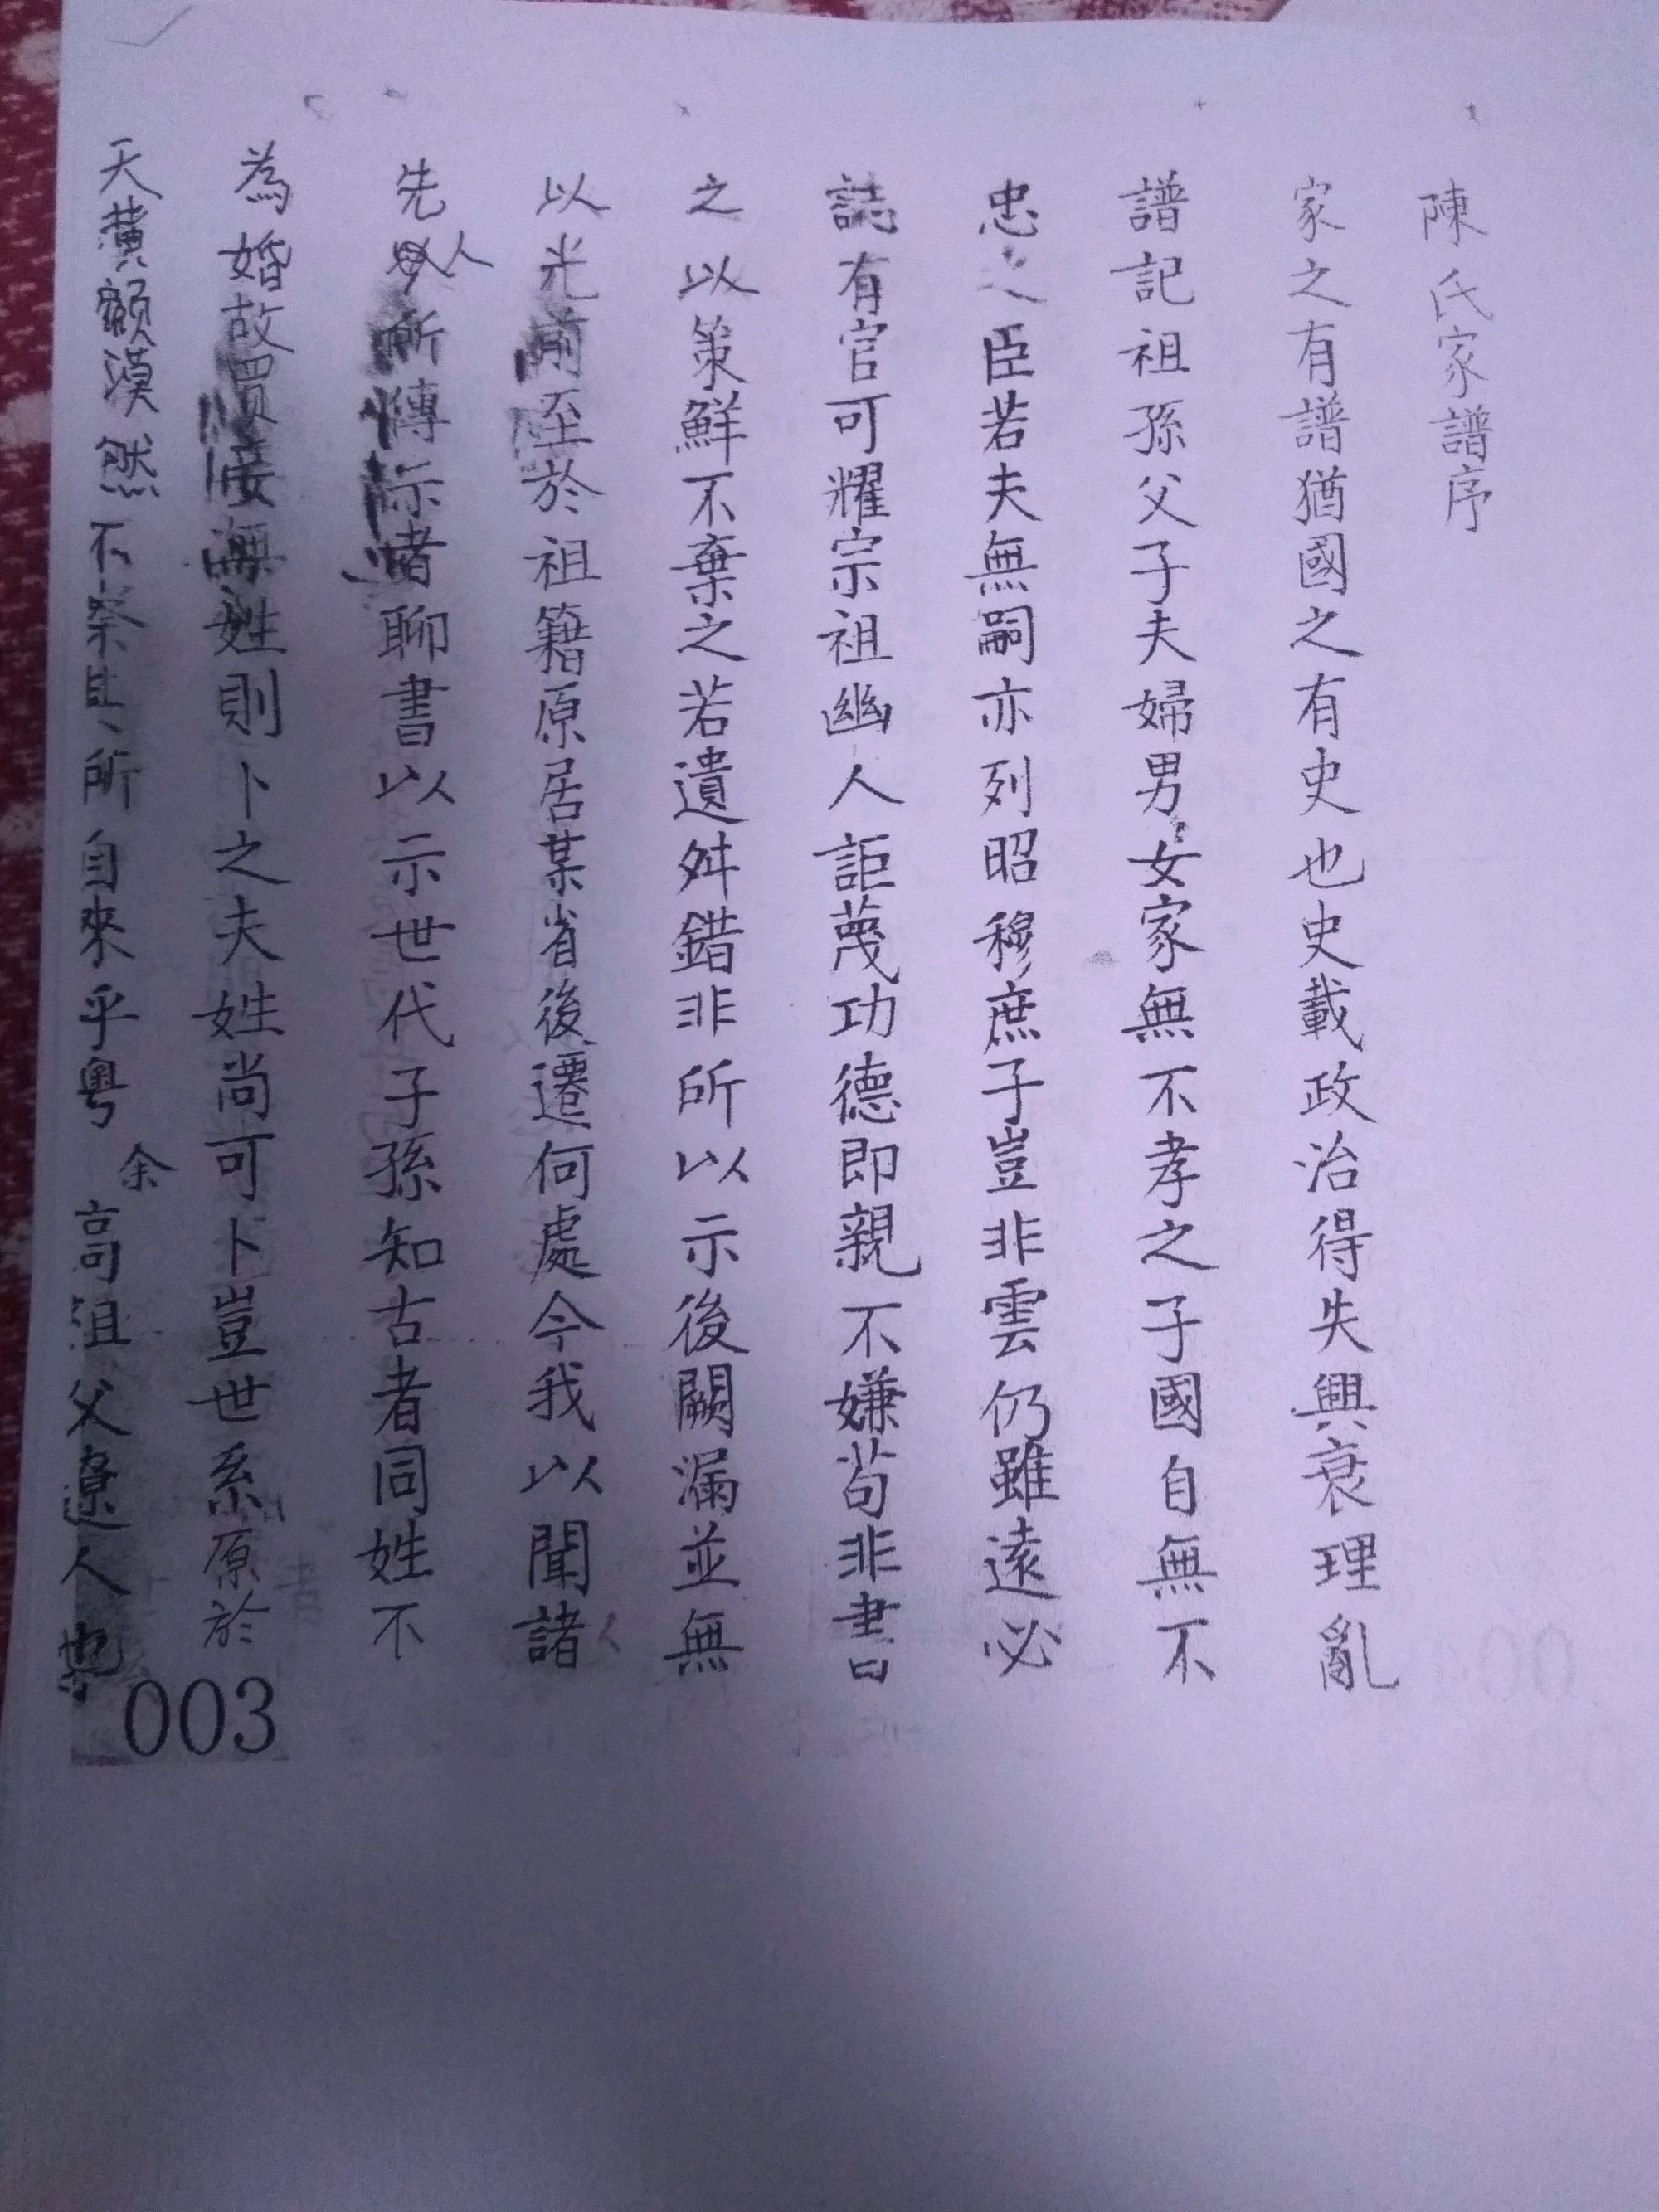 陳氏家譜序
家之有譜猶國之有史也史載政治得失興衰理亂
譜記祖孫父子夫婦男女家無不孝之子國自無不
忠之臣若夫無嗣亦列昭穆庶子豈非雲仍雖遠必
誌有官可耀宗祖幽人詎蔑功德即親不嫌苟非書
之以策鮮不棄之若遺舛錯非所以示後闕漏並無
以光前至於祖籍原居某省後遷何處今我以聞諸
先人所傳示者聊書以示世代子孫知古者同姓不
為婚故買妾無姓則卜之夫姓尚可卜豈世系原於
天黃額漠然不察其所自來乎粵余高祖父遼人也
003